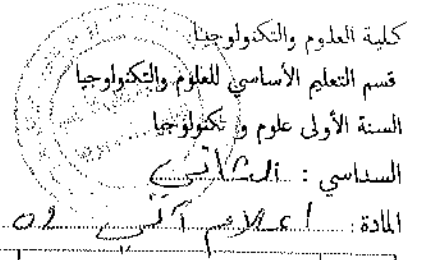 كلية العلوم والتكنولوجيا
قسم التعليم الأساسي للعلوم والتكنولوجيا
السنة الأولى علوم و تكنولوجيا
السداسي : الثاني
المادة : إعلام آلي